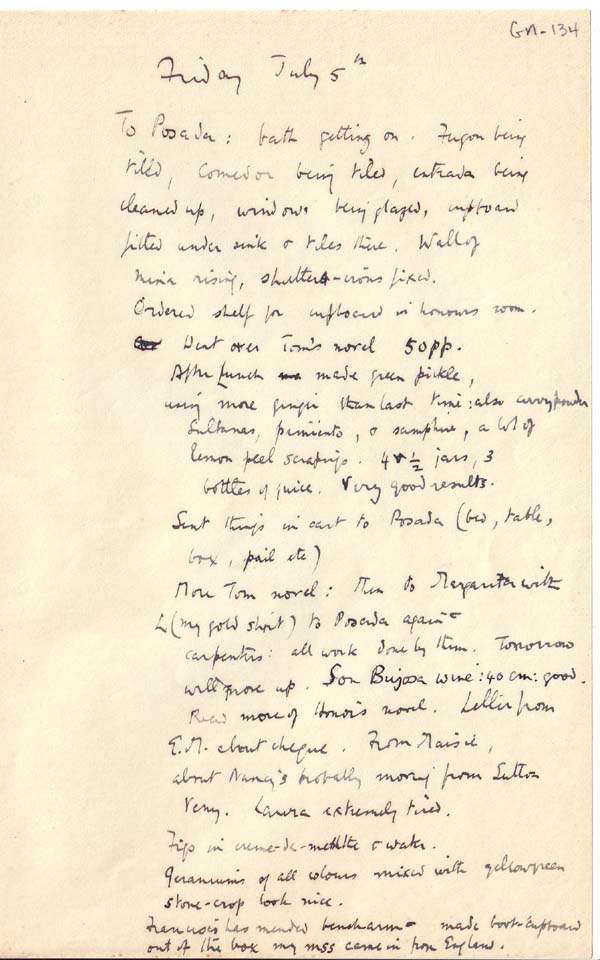 GM-134
Friday July 5th
To Posada: bath getting on. Fugon being
tiled, Comedor being tiled, entrada being
cleaned up, windows being glazed, cupboard
fitted under sink & tiles there. Wall of
rising, shutter-irons fixed.
Ordered shelf for cupboard in honours room.
Went over Tom's novel 50pp.
After lunch made green pickle,
using more ginger than last time: also currypowder
Sultanas, pimiento, & samphire, a lot of
lemon peel scrapings. 4 & ½ jars, 3
bottles of juice. Very good results.
Sent things in cart to Posada (bed, table,
box, pail etc)
More Tom novel: then to Margarita with
L (my gold shirt) to Posada again-
carpenters: all work done by them. Tomorrow
will move up. Son Bujosa wine: 40 cm: good.
Read more of Honor's novel. Letter from
E.M. about cheque. From Maisie,
about Nancy's probably moving from Sutton
Veny. Laura extremely tired.
Figs in creme-de-menthe & water.
Geraniums of all colours mixed with yellowgreen
stone-crop look nice.
Francisco has mended - made boot-cupboard
out of the box my mss came in from England.